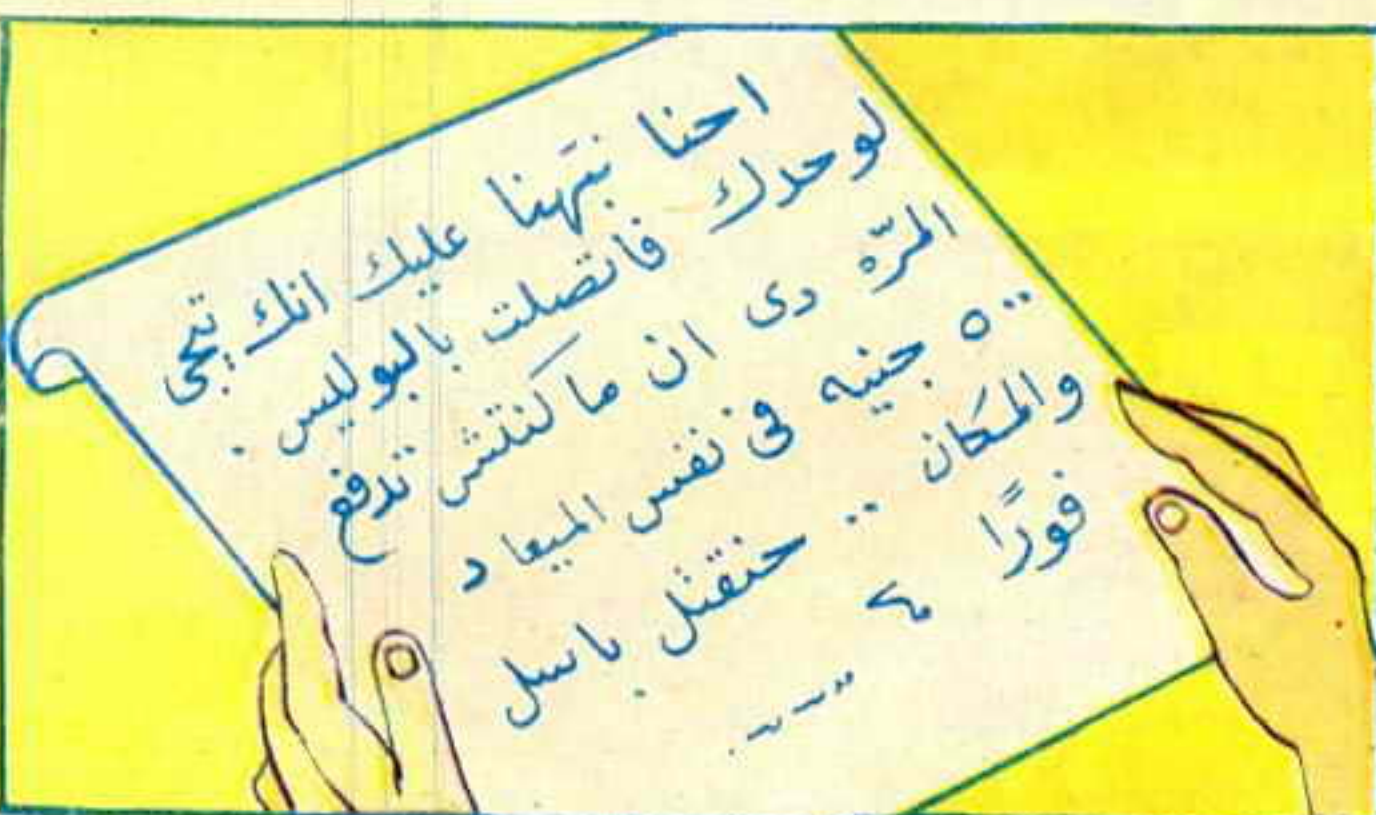 احنا نبّهنا عليك انك تيجى
لوحدك فاتصلت بالبوليس .
المرّه دى ان ماكنتش تدفع
٥٠٠ جنيه فى نفس الميعاد
والمكان .. حنقتل باسل
فورًا